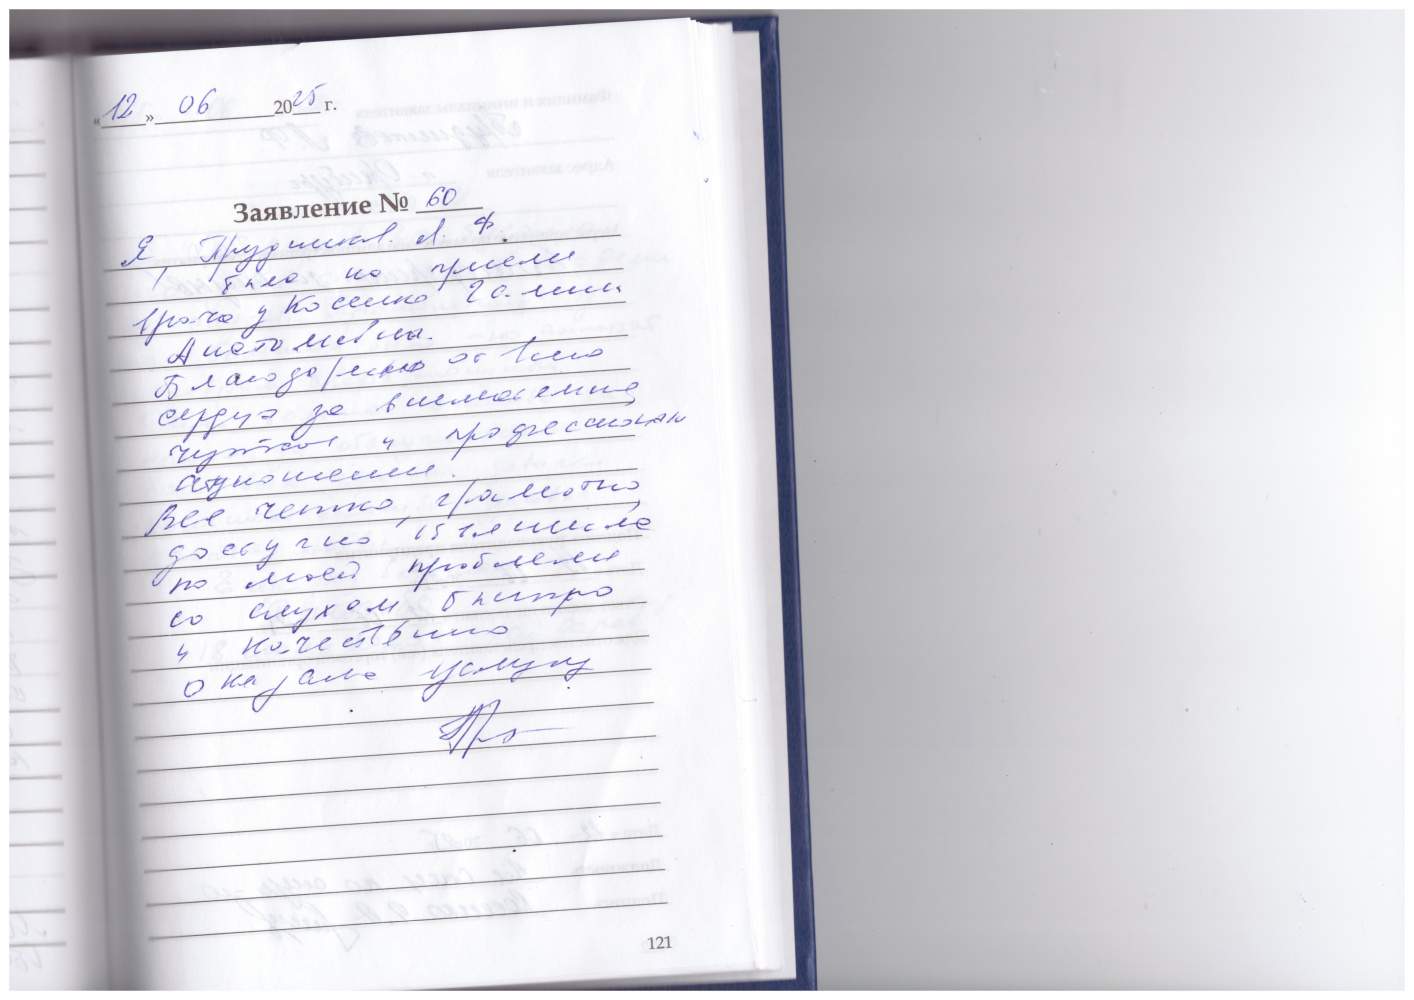 «12» 06 2025 г.
Заявление № 60
Я, Прудников. Л. Ф.
была на приеме
врача у Косенко Галины
Анатольевны.
Благодарна от всего
сердца за внимание,
чуткое и профессионал
отношение.
Все четко, грамотно,
доступно объяснила
по моей проблеме
со слухом быстро
и качественно
оказала услугу
121